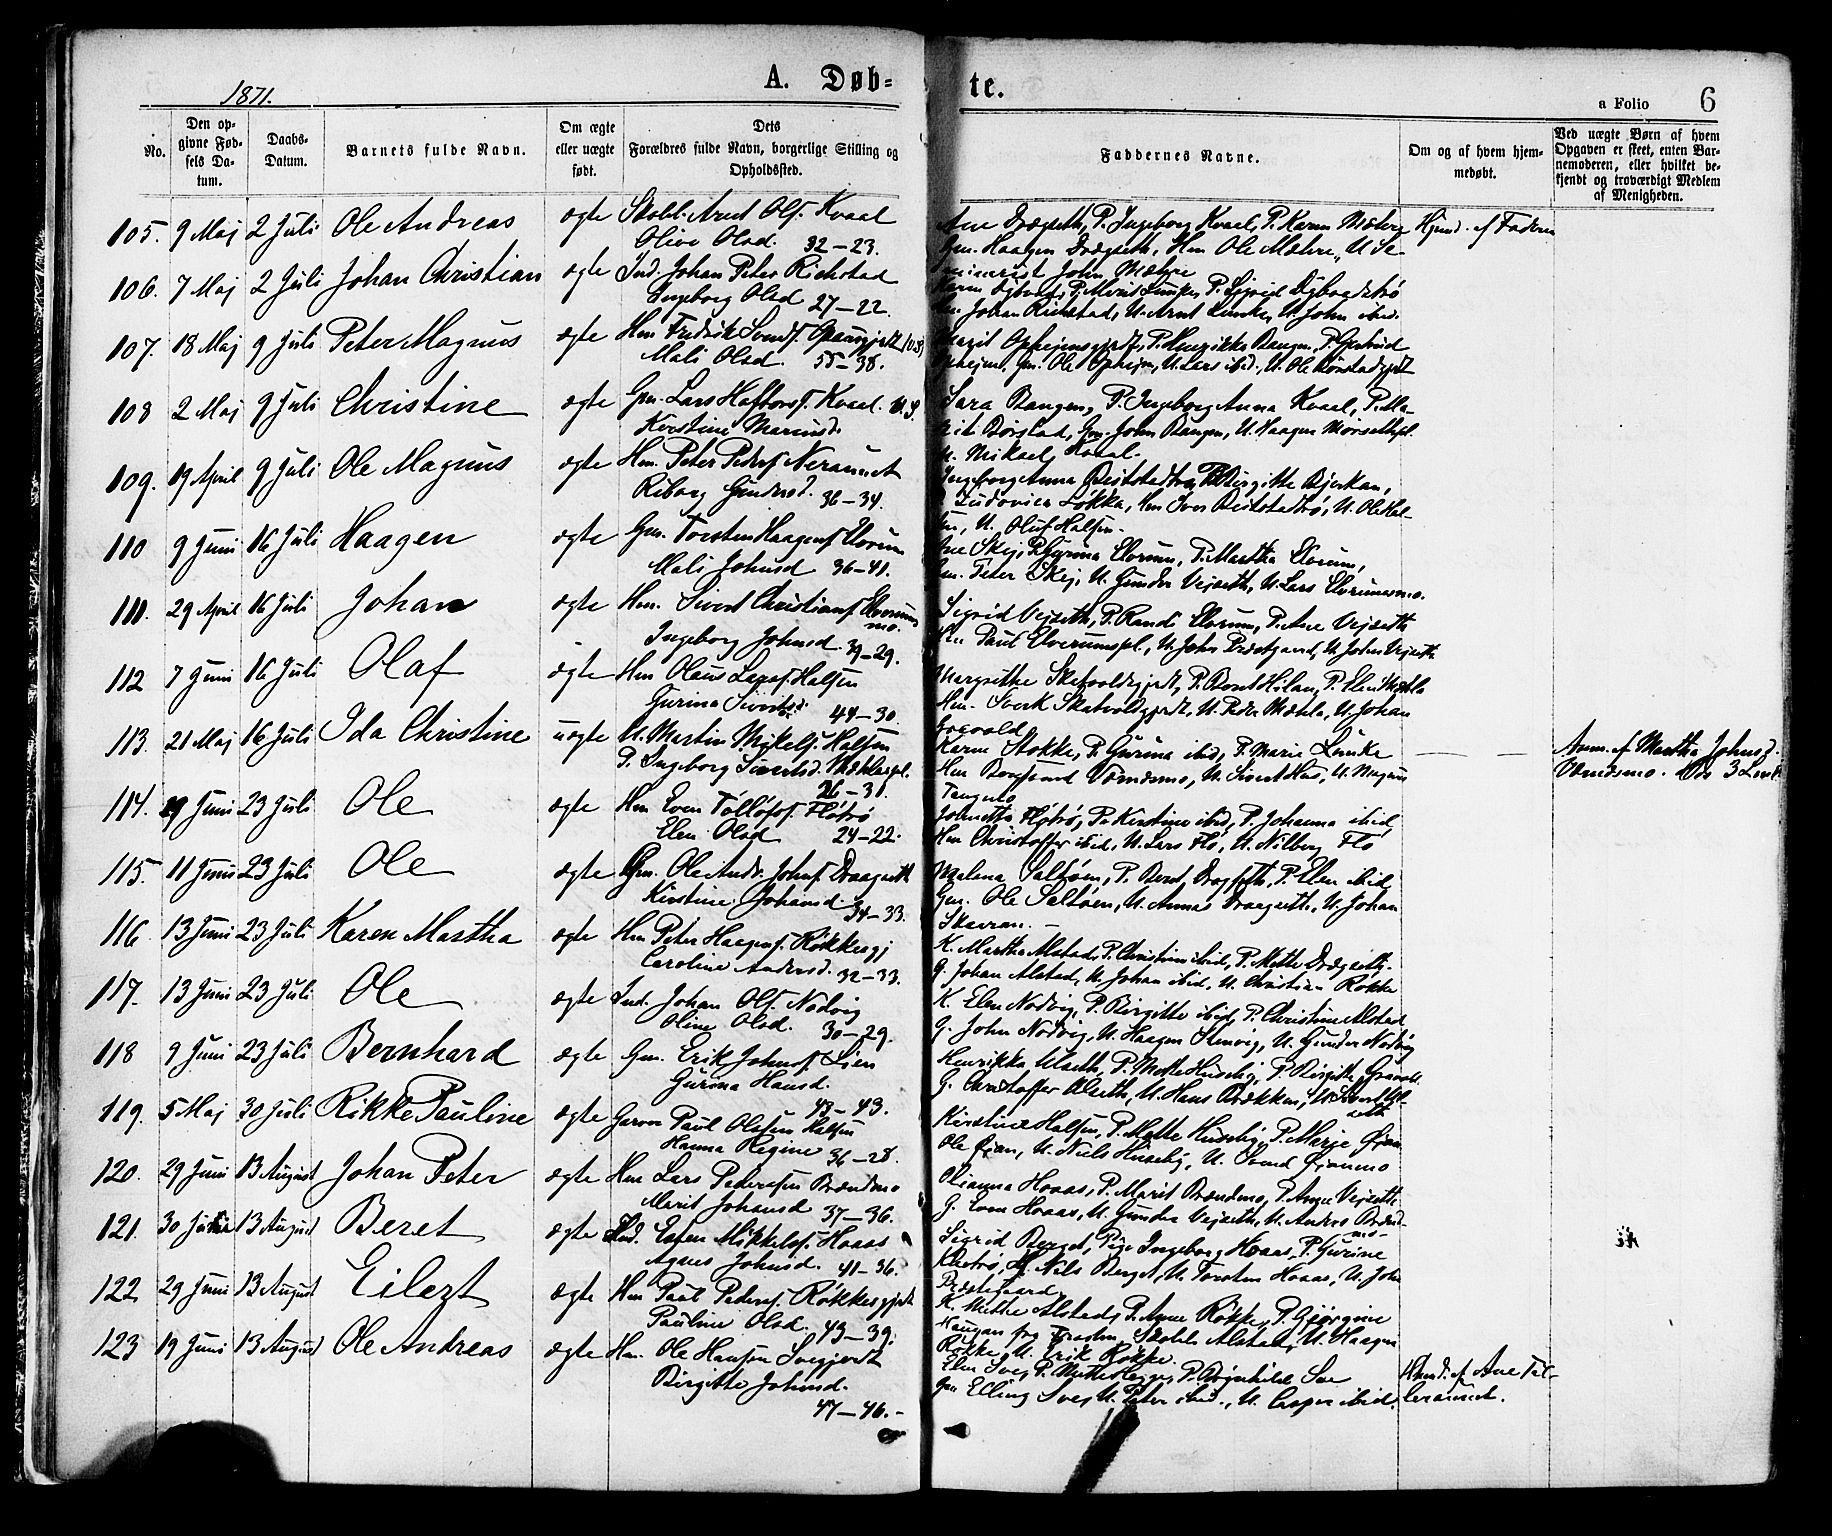 1871.
A. Døb-
te.
a Folio 6
No.
Den op-
givne Fød-
sels Da-
tum.
Daabs-
Datum.
Barnets fulde Navn.
Om ægte
eller uægte
født.
Dets
Forældres fulde Navn, borgerlige Stilling og
Opholdssted.
Faddernes Navne.
Om og af hvem hjem-
medøbt.
Ved uægte Børn af hvem
Opgaven er skeet, enten Bar-
nemoderen, eller hvilket be-
kjendt og troværdigt Medlem
af Menigheden.
105. 9 Maj 2 Juli Ole Andreas ægte Skoll. Arnt Ols. Kvaal
Olive Olsd. 32-23.
Ane Drægseth, P. Ingeborg Kvaal, P. Karen Mæhre Hjemd. af Faderen
Gm. Haagen Drægseth, Hm Ole Mæhre, U. Se-
minarist John Mæhre
106. 7 Maj 2 Juli Johan Christian ægte Ind. Johan Peter Richstad
Ingeborg Olsd 27-22.
Karen Dybvad, P. Marit Lunke, P. Sigrid Dybvadstrø
Johan Richstad, U. Arnt Lunke, U. John ibid.
107. 18 Maj 9 Juli Peter Magnus ægte Hm Fredrik Svends.
Mali Olsd. 55-38.
Gm. Ole Ophejm, U. Lars ibid., U. Ole
108 2 Maj 9 Juli Christine ægte Gm. Lars Haftors. Kvaal.
Kirstine Mariusd.
Sara Bangen, P. Ingeborg Anna Kvaal, P. Ma-
rit Børstad, Gm. John Bangen, U. Haagen Morsethpl.
U. Mikael Kvaal.
109. 19 April 9 Juli Ole Magnus ægte Hm. Peter Peders.
Reborg Gundersd. 36-34.
Ingeborg Anna Reitstadtrø, P. Birgitte Bjerkan,
Ludovica Løkka, Hm Iver Reitstadtrø, U. Ole Hal-
sen, U. Oluf Halsen.
110 9 Juni 16 Juli Haagen ægte Gm. Torsten Haagens. Elverum
Mali Johnsd 36-41.
Ane Skej, P. Gurina Elverum, P. Martha Elverum,
Gm. Peter Skej, U. Gunder Vejseth, U. Lars Elverumsmo.
111. 29 April 16 Juli Johan ægte Hm. Sivert Christians. Elverums
mo.
Ingeborg Johnsd. 39-29.
Sigrid Vejseth, P. Randi Elverum, P. Ane Vejseth
Paul Elverumspl., U. John Præstgaard, U. John Vejseth
112 7 Juni 16 Juli Olaf ægte Hm Olaus Larss. Halsen
Gurina Sivertsd. 44-30.
Margrethe Skatvoldgjerdt, P. Beret Hilan, P. Elen Mæhla
Hm. Sverk Skatvoldgjerdt, U. Peder Mæhla, U. Johan
113. 21 Maj 16 Juli Ida Christine uægte U. Martin Mikels. Halsen
P. Ingeborg Sivertsd. Mæhlaspl.
26-31.
Karen Stokke, P. Gurina ibid, P. Marie Lunke
Værnesmo, U. Sivert Hus, U. Magnus
Tangmo
— —
Anm. af Martha Johnsd.
Værnesmo.
114. 29 Juni 23 Juli Ole ægte Hm Even Tollefs. Fløtrø
Elen Olsd 24-22.
Johnetta Fløtrø, P. Kirstine ibid, P. Johanna ibid,
Hm Christoffer ibid, U. Lars Flø, U. Nilberg Flø
115. 11 Juni 23 Juli Ole ægte Gm. Ole Andr. Johns. Draagseth
Kirstine Johansd. 34-33.
Malena Saltøen, P. Beret Dragseth, P. Elen ibid,
Gm. Ole Saltøen, U. Annas Draagseth, U. Johan
Skavran. —
116. 13 Juni 23 Juli Karen Martha ægte Hm Peter Haagens. Røkkesgj
Caroline Andersd. 32-33.
K. Martha Alstad, P. Christine ibid, P. Mette Drægseth.
G. Johan Alstad, U. Johan ibid, U. Christian Røkke
117. 13 Juni 23 Juli Ole ægte Ind. Johan Ols. Nødvig
Oline Olsd. 30-29.
K. Elen Nødvig, P. Birgitte ibid, P. Christine Alstad
G. John Nødvig, U. Haagen Stenvig, U. Gunder Nødvig
118 9 Juni 23 Juli Bernhard ægte Gm. Erik Johns. Lien
Gurina Hansd.
43-43.
Henrikka Ulseth, P. Mette Huseby, P. Birgitte
G. Christoffer Ulseth, U. Hans Brækken, U. Sivert Ul-
seth
119. 5 Maj 30 Juli Rikke Pauline ægte Garver Paul Olssen Halsen
Hanna Regine 36-28.
Kirstine Halsen, P. Mette Huseby, P. Marje Øian
Ole Øian, U. Niels Huseby, U. Svend Øianmo
120. 29 Juni 13 August Johan Peter ægte Hm Lars Pederssen Brændmo
Marit Johansd 37-36.
Olianna Hoaas, P. Marit Brændmo, P. Anne Vejseth
G. Even Hoaas, U. Gunder Vejseth, U. Anders Brænd-
mo-
121. 30 Juni 13 August Beret ægte Ind. Esten Mikkels. Hoaas
Agnes Johnsd. 41-36.
Sigrid Berget, Pige Ingeborg Hoaas, P. Gurine
Nils Berget, U. Torsten Hoaas, U. John
Præstegaard
122 29 Juni 13 August Eilert ægte Hm Paul Peders. Røkkesgjerdt
Pauline Olsd. 43-39.
K. Mette Alstad, P. Anne Røkke, P. Gjørgine
Alstad, U. Haagen
Røkke U. Erik Røkke.
123 19 Juni 13 August Ole Andreas ægte Hm. Ole Hansen Svegjerdt
Birgitte Johnsd.
47-46.-
Elen Sve, P. Mette Hegge, P. Bojnhild Sve
Gm Elling Sve, U. Peter ibid., U. Casper ibid.
Hjemd. af Ane Til-
lerannet.